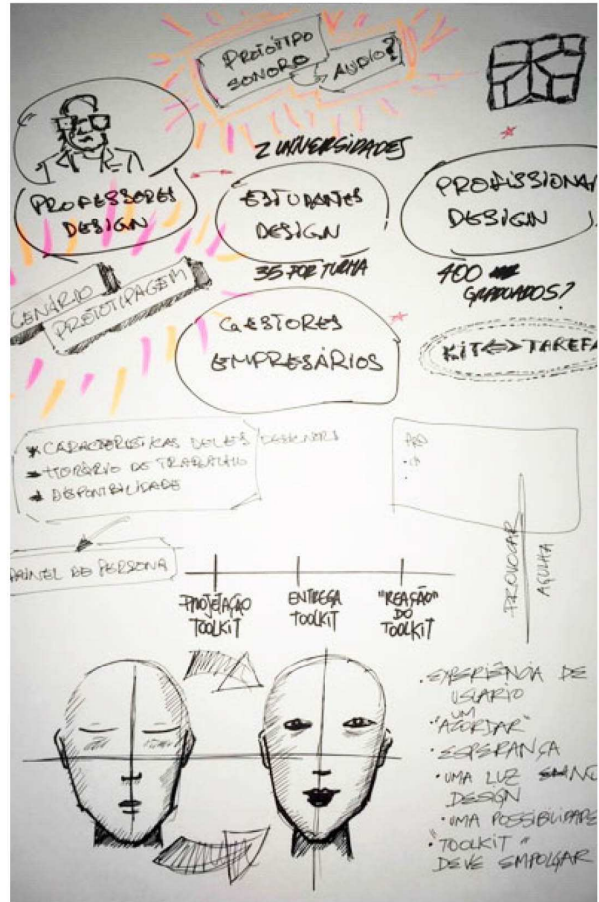 PROTÓTIPO
SONORO
AUDIO?
2 UNIVERSIDADES
PROFESSORES
DESIGN
ESTUDANTES
DESIGN
35 POR TURMA
PROFISSIONA
DESIGN
400
GRADUADOS?
CENÁRIO
PROTOTIPAGEM
GESTORES
EMPRESÁRIOS
KIT <=> TAREFA
* CARACTERÍSTICAS DELES DESIGNERS
* HORÁRIO DE TRABALHO
* DISPONIBILIDADE
PAINEL DE PERSONA
PROJETAÇÃO
TOOLKIT
ENTREGA
TOOLKIT
"REAÇÃO"
DO
TOOLKIT
PROVOCAR
AGULHA
• EXPERIÊNCIA DE
USUARIO
UM
"ACORDAR"
• ESPERANÇA
• UMA LUZ
DESIGN
• UMA POSSIBILIDADE
• "TOOLKIT"
DEVE EMPOLGAR